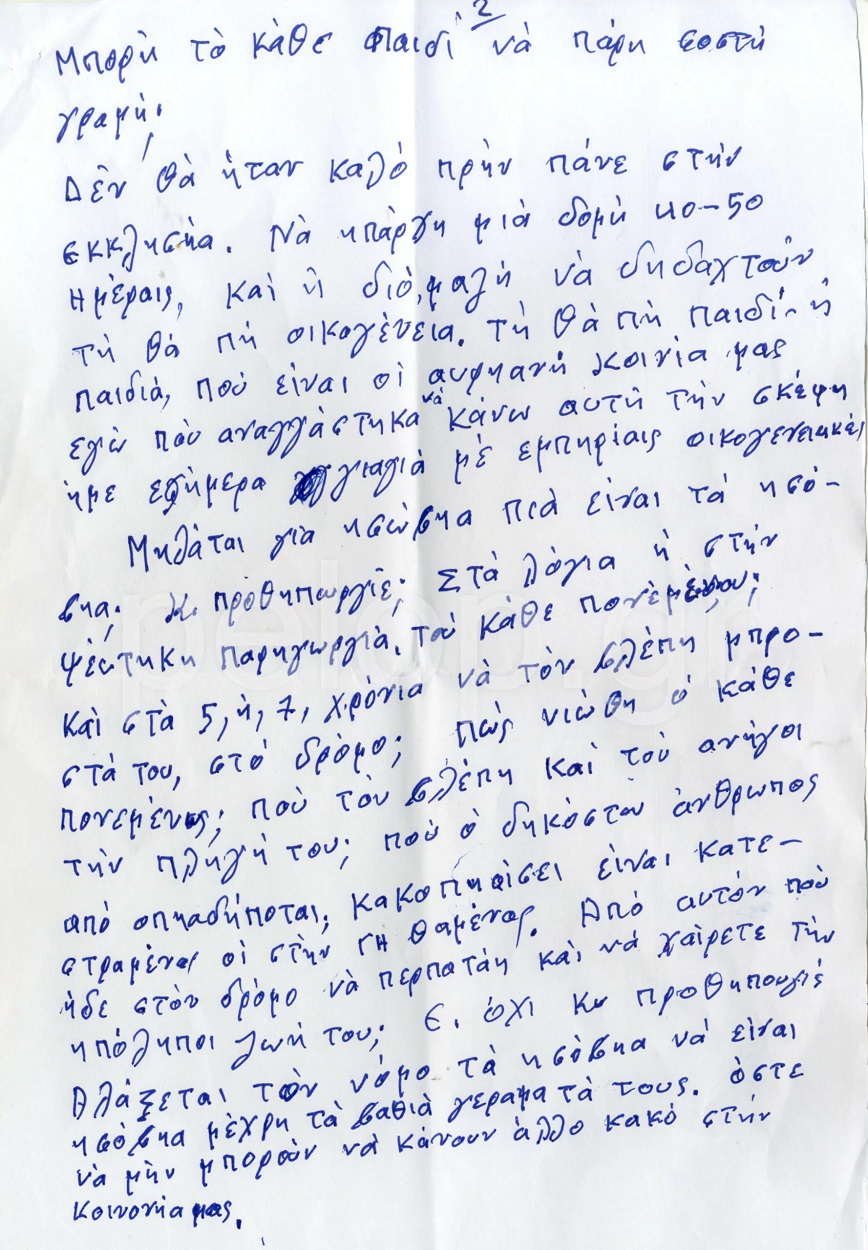 2
Μπορὴ τὸ κάθε παιδὶ νὰ πάρη σοστὴ
γραμή;
Δὲν θὰ ήταν καλό πρὴν πάνε στὴν
εκκλησηα. Νὰ ηπάρχη μιὰ δομὴ 40-50
ημέραις, καὶ ἡ διό, μαζὴ νὰ δηδαχτοὺν
τὴ θὰ πὴ οικογένεια. τὴ θὰ πὴ παιδὶ ἡ
παιδιά, ποὺ είναι οἱ αυρηανὴ κοινία μας
εγὼ ποὺ αναγγάστηκα νὰ κάνω αυτὴ τὴν σκέψη
ήμε εφήμερα γιαγιά μὲ εμπηρίαις οικογενιακές
Μηλάται γὶα ησώβηα πιὰ είναι τὰ ησό-
βηα; Κ. προθηπωργὲ; Στὰ λόγια ἡ στὴν
ψέυτηκη παρηγωργιὰ. τοὺ κάθε πονεμένου;
Καὶ στὰ 5, ἡ, 7, χρόνια νὰ τὸν βλέπη μπρο-
στά του, στὸ δρόμο; πῶς νιώθη ὁ κάθε
πονεμένος; ποὺ τὸν βλέπη καὶ τοὺ ανήγοι
τὴν πληγή του; ποὺ ὁ δηκόστου ἄνθρωπος
από οπηαδήποται, κακοπηαίσει είναι κατε-
στραμένος οἱ στὴν γη θαμένος. Από αυτὸν ποὺ
ήδε στὸν δρόμο νὰ περπατάη καὶ νὰ χαὶρετε τὴν
ηπόληποι ζωή του; Ε. όχι Κυ προθηπουργέ
Αλάξεται τὸν νόμο τὰ ησόβηα νὰ είναι
ησόβηα μέχρη τὰ βαθιὰ γεραματὰ τους. ὁστε
νὰ μὴν μποροὺν νὰ κάνουν ἀλλο κακὸ στὴν
Κοινονηα μας.